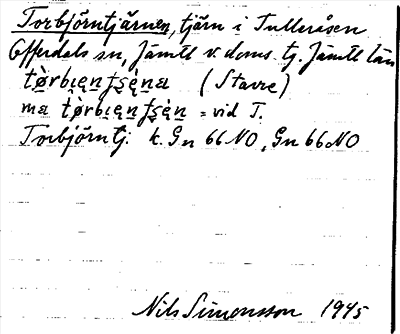 Torbjörntjärnen, tjärn i Tulleråsen
Offerdals sn, Jämtl v. doms. tg. Jämtl län
(Stavre)
= vid T.
Torbjörntj. k. Gn 66 NO, Gn 66 NO
Nils Simonsson 1945